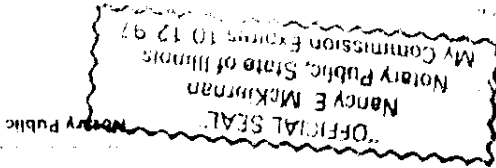 Notary Public
"OFFICIAL SEAL"
Nancy E McKiernan
Notary Public, State of Illinois
My Commission Expires 10 12 97